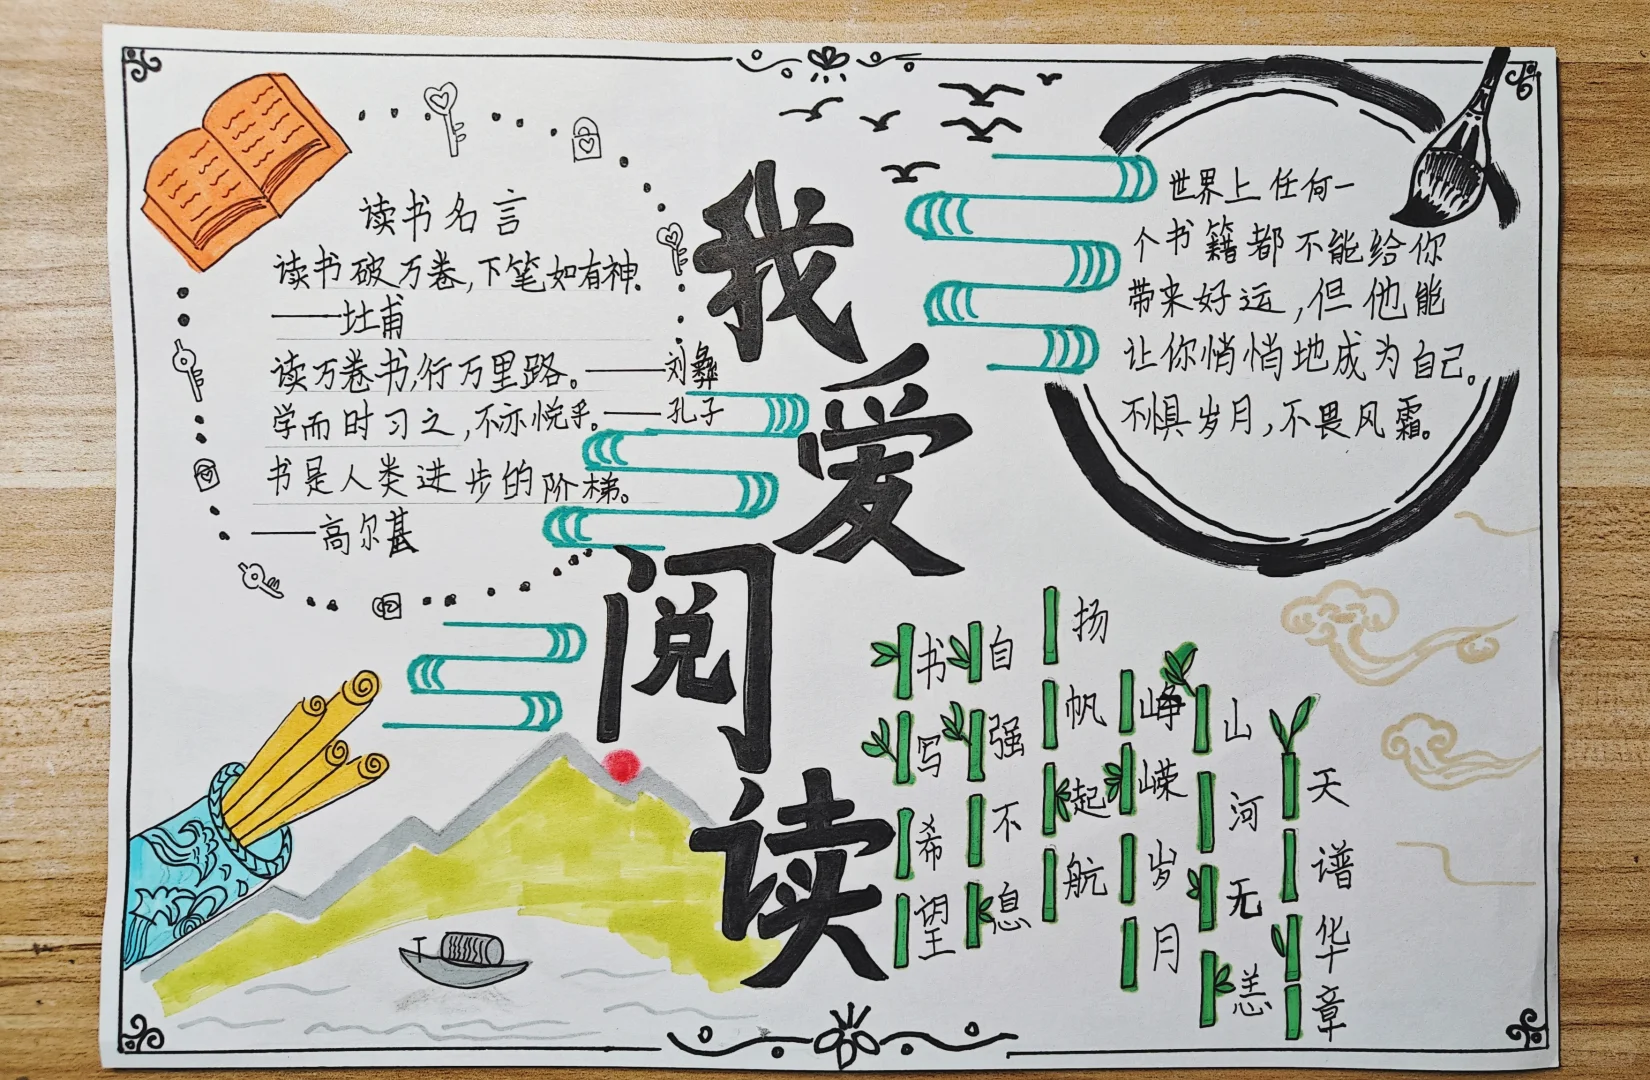 我爱阅读
读书名言
读书破万卷,下笔如有神.
——杜甫
读万卷书,行万里路。——刘彝
学而时习之,不亦悦乎。——孔子
书是人类进步的阶梯。
——高尔基
世界上任何一
个书籍都不能给你
带来好运,但他能
让你悄悄地成为自己。
不惧岁月,不畏风霜。
书写希望
自强不息
扬帆起航
峥嵘岁月
山河无恙
天谱华章